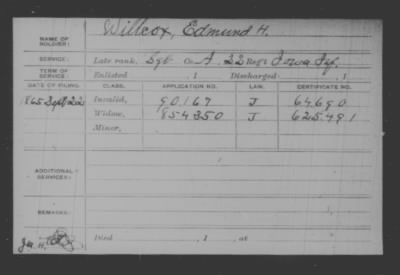 NAME OF SOLDIER: Willcox, Edmund H.
SERVICE: Late rank, Sgt Co. A, 22 Reg't Iowa Inf.
TERM OF SERVICE: Enlisted , 1 Discharged , 1
DATE OF FILING. CLASS. APPLICATION NO. LAW. CERTIFICATE NO.
1865 Sept 22 Invalid, 90,167 J 64690
Widow, 854350 J 625491
Minor,
ADDITIONAL SERVICES:
REMARKS:
Died , 1 , at